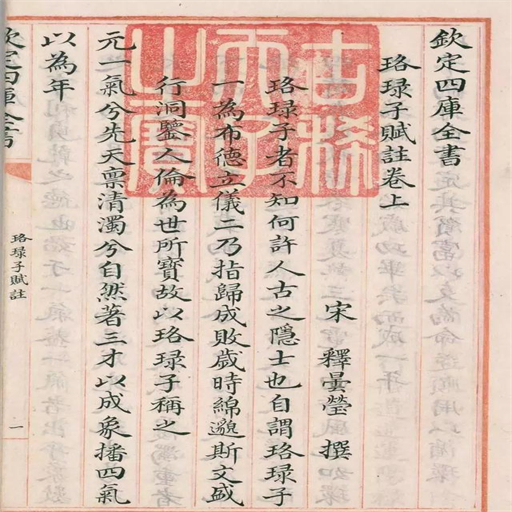 欽定四庫全書
珞琭子賦註卷上
宋 釋曇瑩 撰
珞琭子者不知何許人古之隱士也自謂珞琭子
一為布德立儀二乃指歸成敗歲時綿邈斯文盛
行洞鑒人倫為世所寶故以珞琭子稱之
元一氣兮先天稟清濁兮自然著三才以成象播四氣
以為年
欽定四庫全書
珞琭子賦註
一
古稀天子之寶